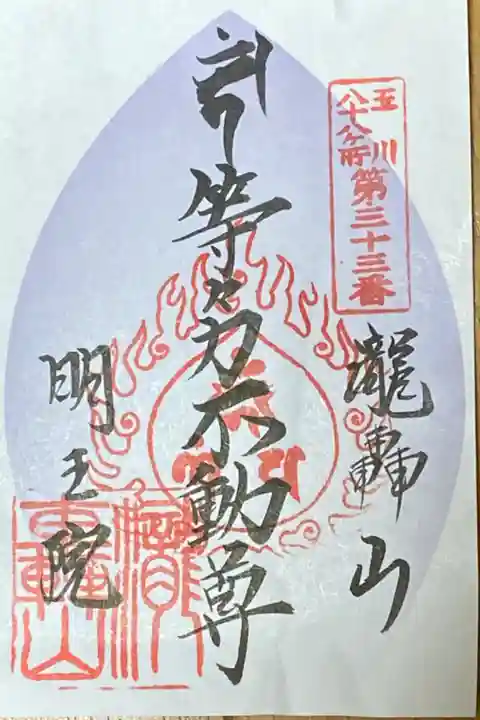 玉川
八十八ケ所
第三十三番
瀧轟山
等々力不動尊
明王院
瀧轟山